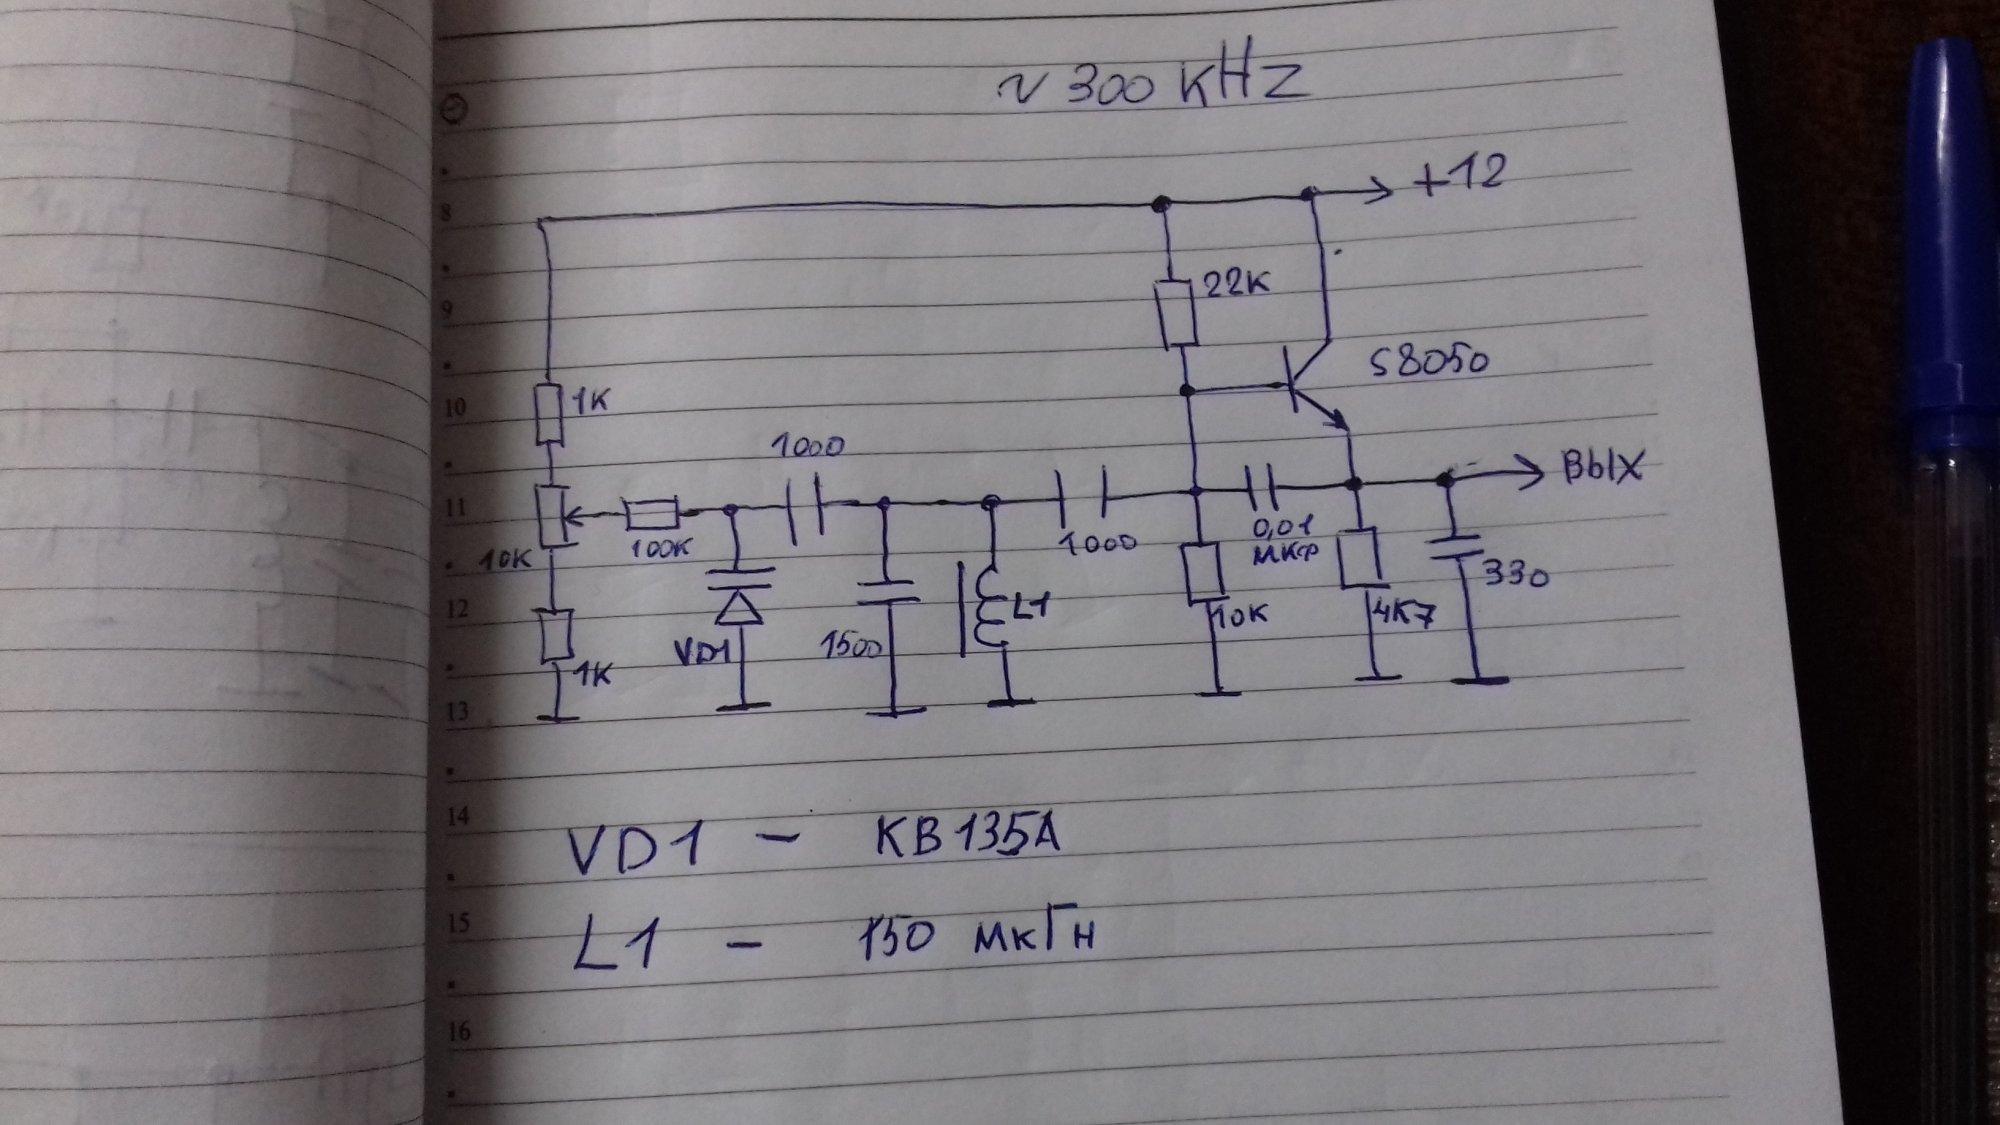 ~ 300 KHZ
+12
8
22K
9
S8050
10
1K
1000
ВЫХ
11
10K
100K
1000
0,01
МКФ
330
12
L1
10K
4K7
VD1
1500
1K
13
14
VD1 - КВ135А
15
L1 - 150 мкГн
16